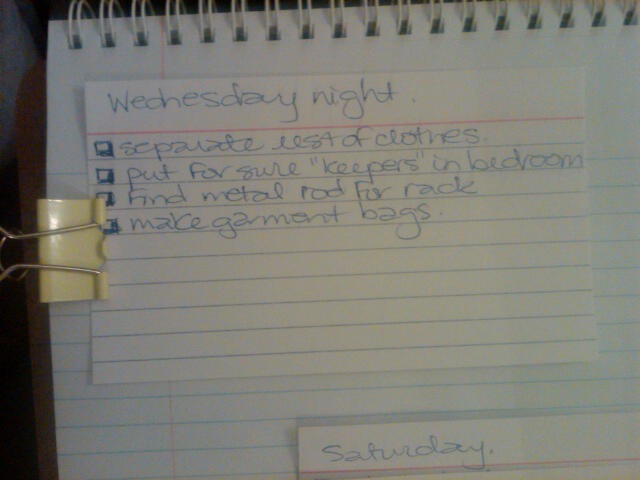 Wednesday night.
separate rest of clothes.
put for sure "keepers" in bedroom
find metal rod for rack
make garment bags.
Saturday.